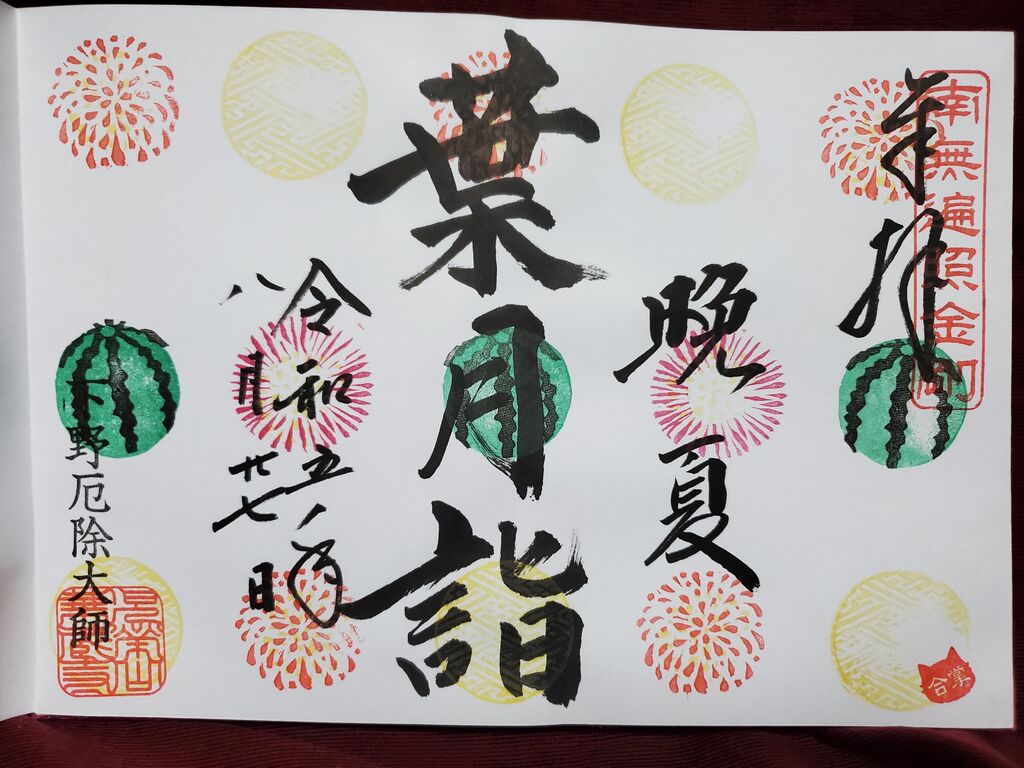 奉拝
南無遍照金剛
晩夏
葉月詣
令和五年
八月廿七日
下野厄除大師
合掌